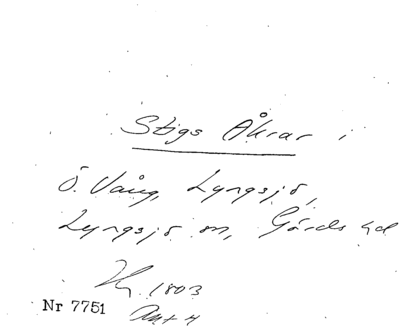 Stigs Åkrar i
Ö. Vång, Lyngsjö,
Lyngsjö sn, Gärds hd
1803
Nr 7751 Akt 4